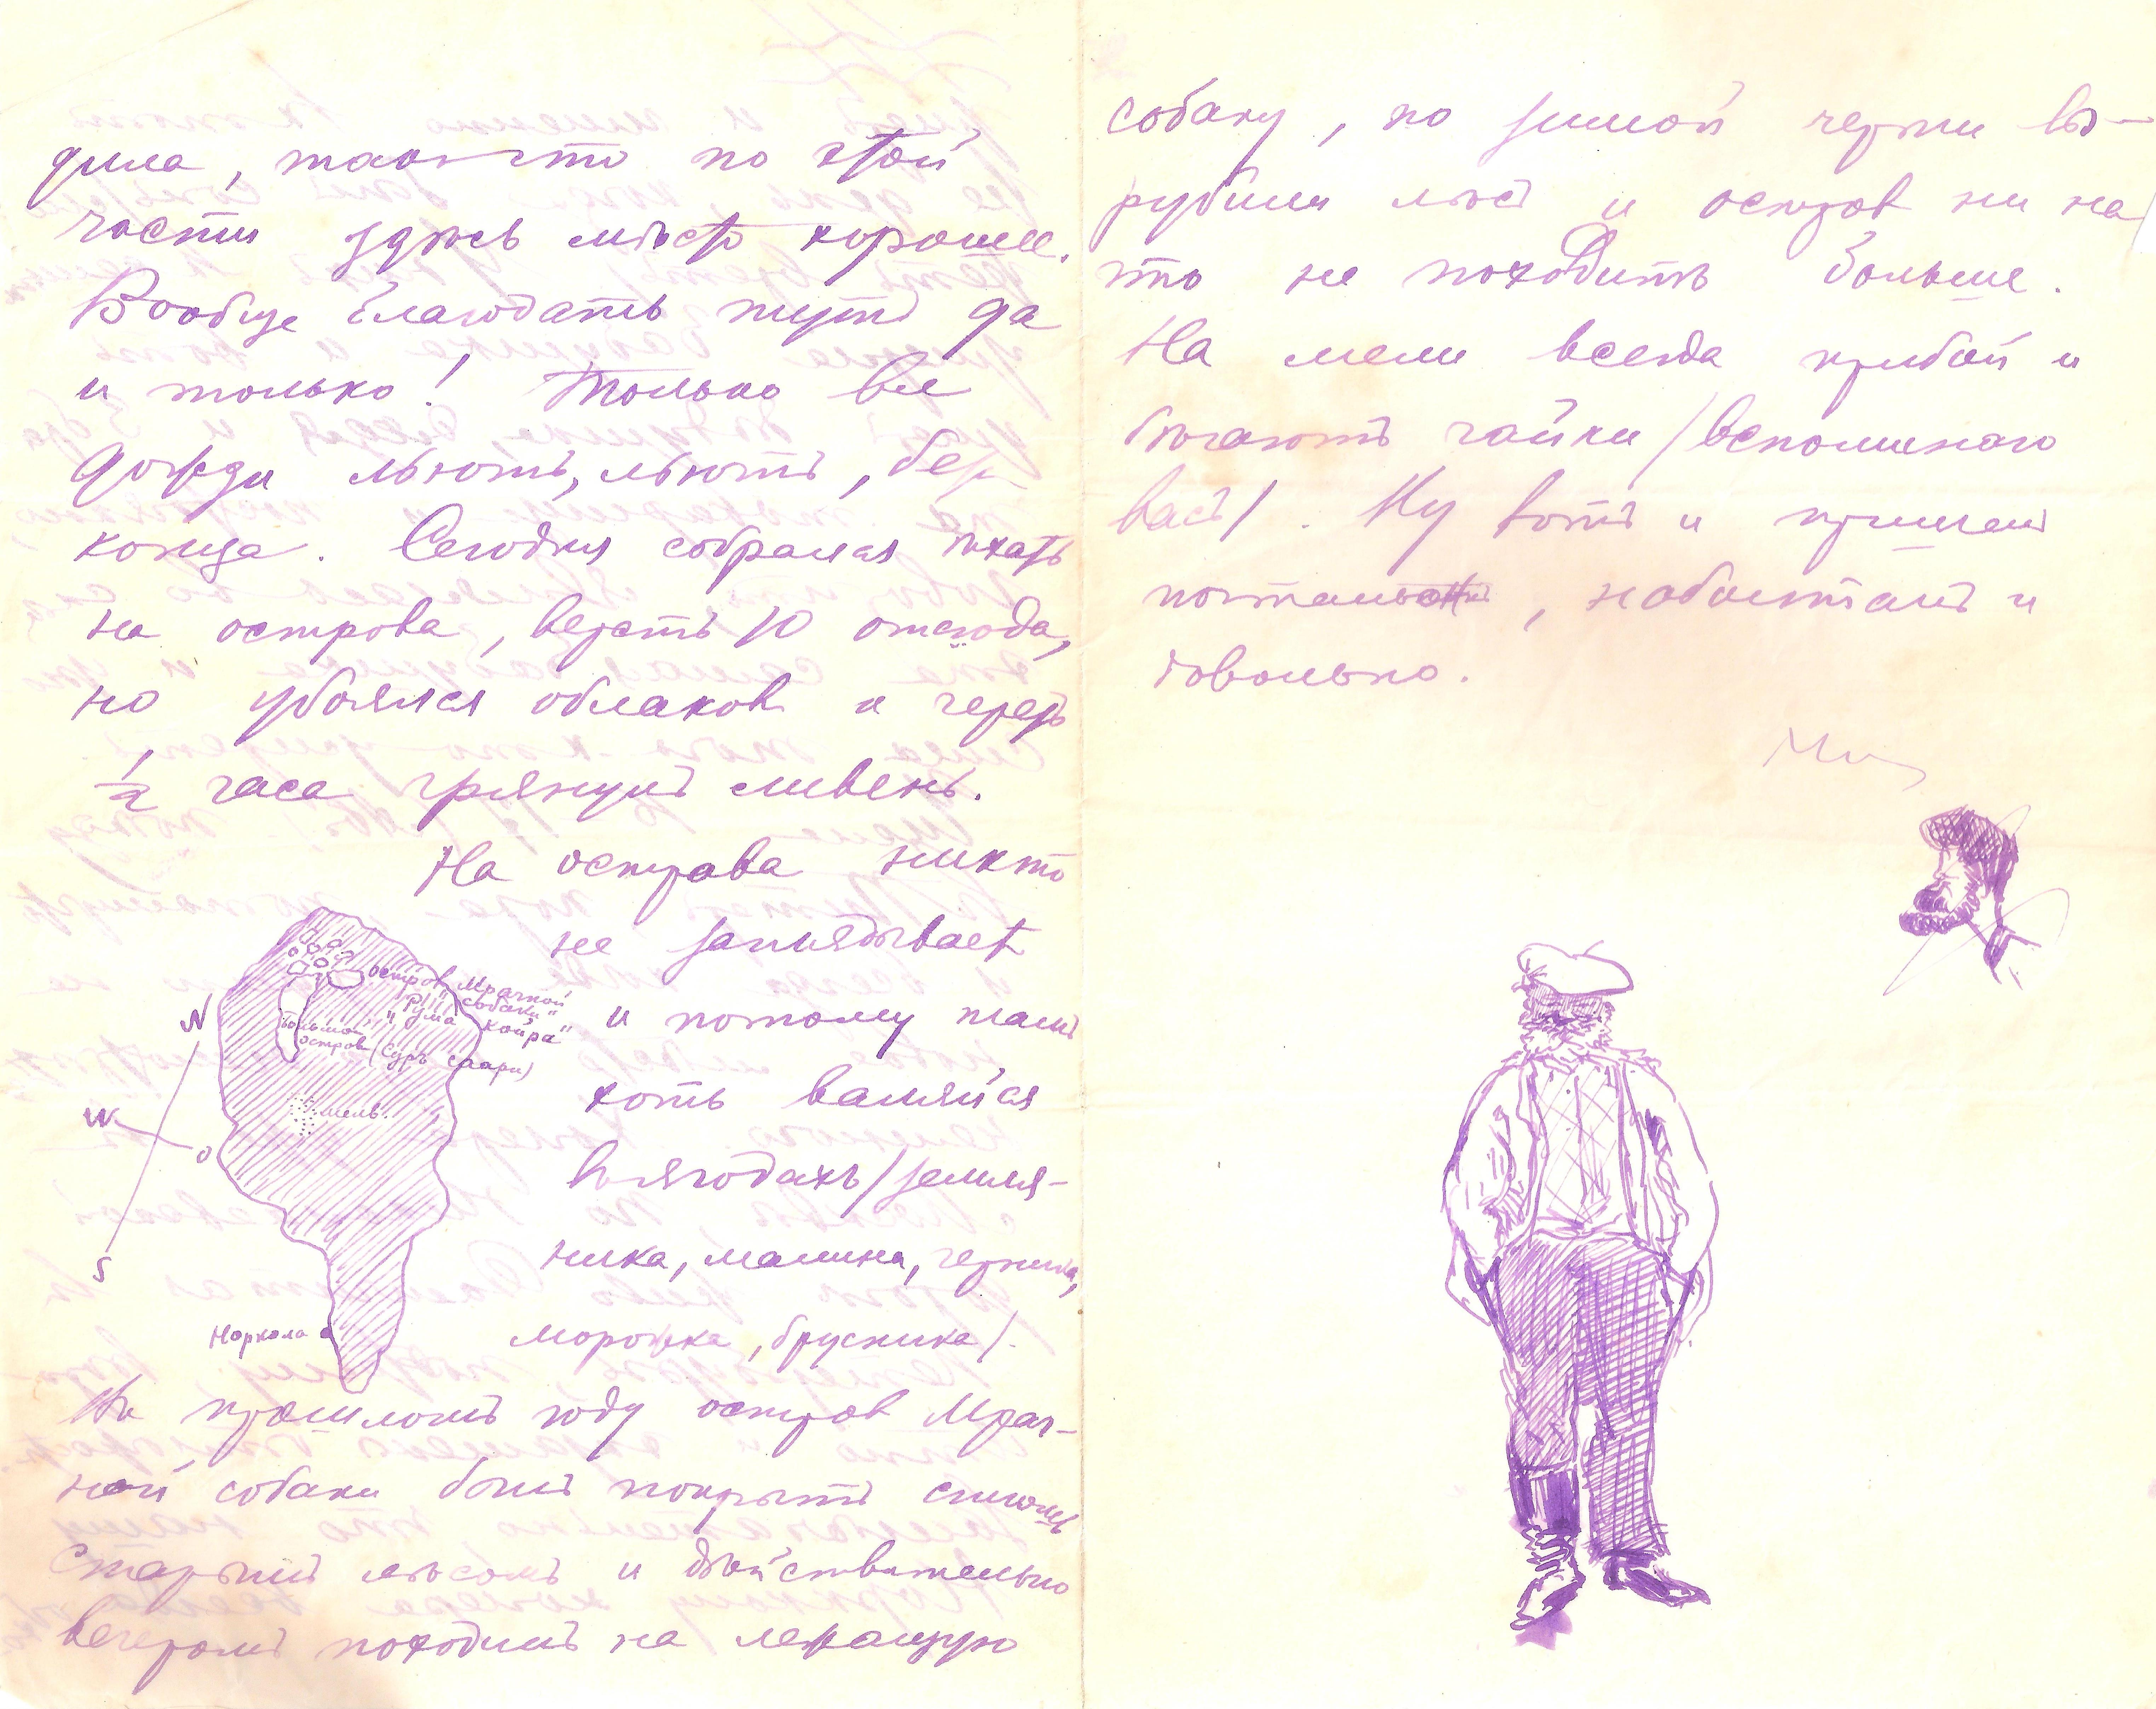 дила, такъ что по этой
части здѣсь мѣсто хорошее.
Вообще благодать тутъ да
и только! Только вѣ
дожди льютъ, льютъ, без
конца. Сегодня собрался ѣхать
на острова, верстъ 10 отсюда,
но убоялся облаковъ и черезъ
1/2 часа грянулъ ливень.
На острова никто
не заглядываетъ
и потому тамъ
хоть валяйся
въ ягодахъ /земля-
ника, малина, черника,
морошка, брусника/.
остров Мрачной
собаки"
"Рума койра"
Большой
остров (Суръ саари)
N
W
O
S
мель.
Норкола
Въ прошломъ году остров Мрач-
ной собаки былъ покрытъ сплошь
старымъ лѣсомъ и дѣйствительно
вечеромъ походилъ на лежащую
собаку, но зимой черти вы-
рубили лѣсъ и остров ни на
что не походитъ больше.
На мели всегда прибой и
бѣгаютъ чайки /вспоминаю
васъ/. Ну вотъ и пришелъ
почтальонъ, наболталъ и
довольно.